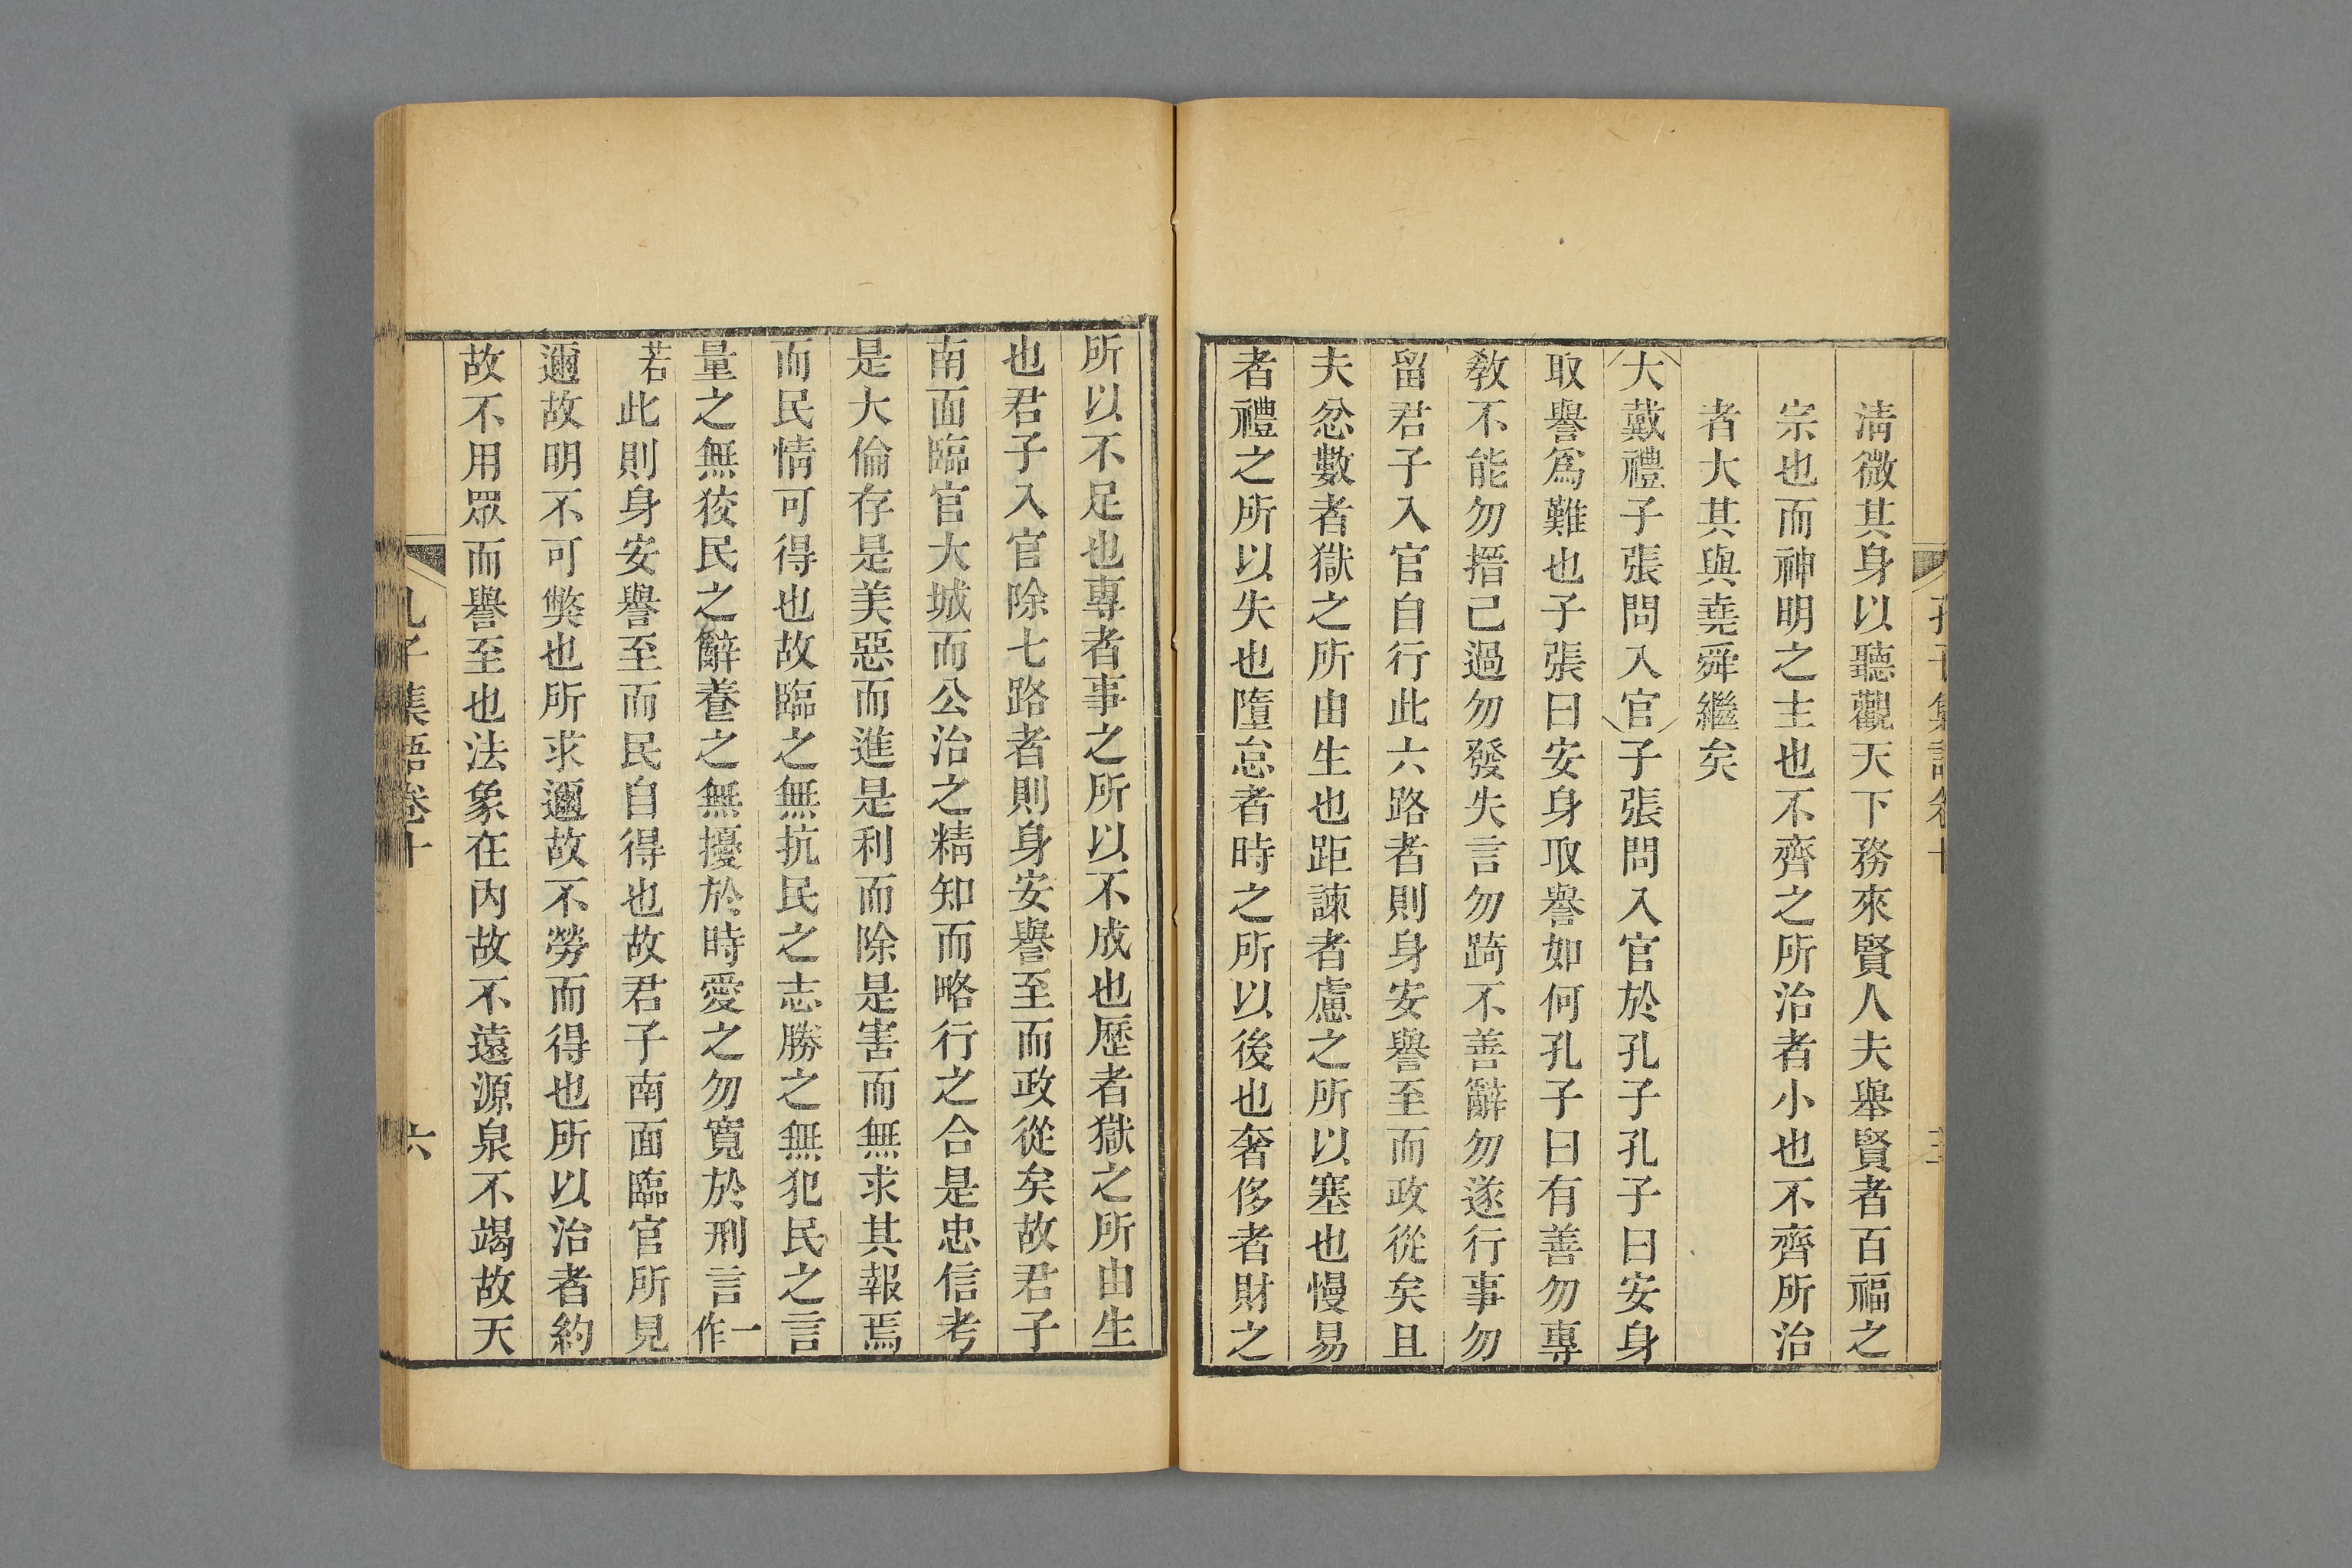 清微其身以聽觀天下務來賢人夫舉賢者百福之
宗也而神明之主也不齊之所治者小也不齊所治
者大其與堯舜繼矣
大戴禮子張問入官子張問入官於孔子孔子曰安身
取譽爲難也子張曰安身取譽如何孔子曰有善勿專
教不能勿搢己過勿發失言勿踦不善辭勿遂行事勿
留君子入官自行此六路者則身安譽至而政從矣且
夫忿數者獄之所由生也距諫者慮之所以塞也慢易
者禮之所以失也墮怠者時之所以後也奢侈者財之
所以不足也專者事之所以不成也歷者獄之所由生
也君子入官除七路者則身安譽至而政從矣故君子
南面臨官大城而公治之精知而略行之合是忠信考
是大倫存是美惡而進是利而除是害而無求其報焉
而民情可得也故臨之無抗民之志勝之無犯民之言
量之無狡民之辭養之無擾於時愛之勿寬於刑言一作
若此則身安譽至而民自得也故君子南面臨官所見
邇故明不可獘也所求邇故不勞而得也所以治者約
故不用眾而譽至也法象在内故不遠源泉不竭故天
孔子集語卷十 六